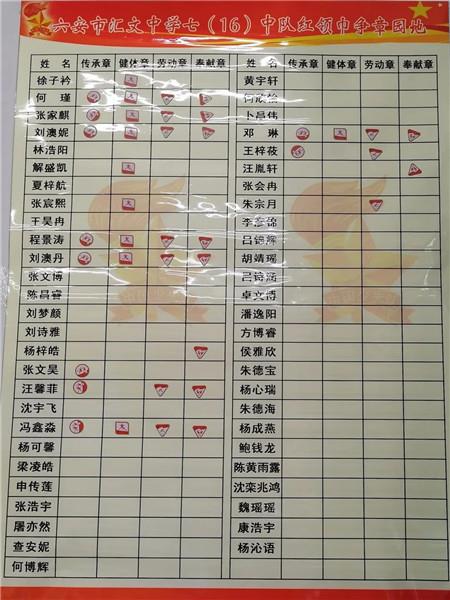 六安市汇文中学七（16）中队红领巾争章园地
姓 名 传承章 健体章 劳动章 奉献章 姓 名 传承章 健体章 劳动章 奉献章
徐子衿 黄宇轩
何 瑾 何欣怡
张家麒 卜昌伟
刘澳妮 邓 琳
林浩阳 王梓莜
解盛凯 汪胤轩
夏梓航 张会冉
张宸熙 朱宗月
王昊冉 李彦锦
程景涛 吕锦辉
刘澳丹 胡靖瑶
张文博 吕锦涵
陈昌睿 卓文博
刘梦颜 潘逸阳
刘诗雅 方博睿
杨梓皓 侯雅欣
张文昊 朱德宝
汪馨菲 杨心瑞
沈宇飞 朱德海
冯鑫淼 杨成燕
杨可馨 鲍钱龙
梁凌皓 陈黄雨露
申传莲 沈栾兆鸿
张浩宇 魏瑶瑶
屠亦然 康浩宇
查安妮 杨沁语
何博辉